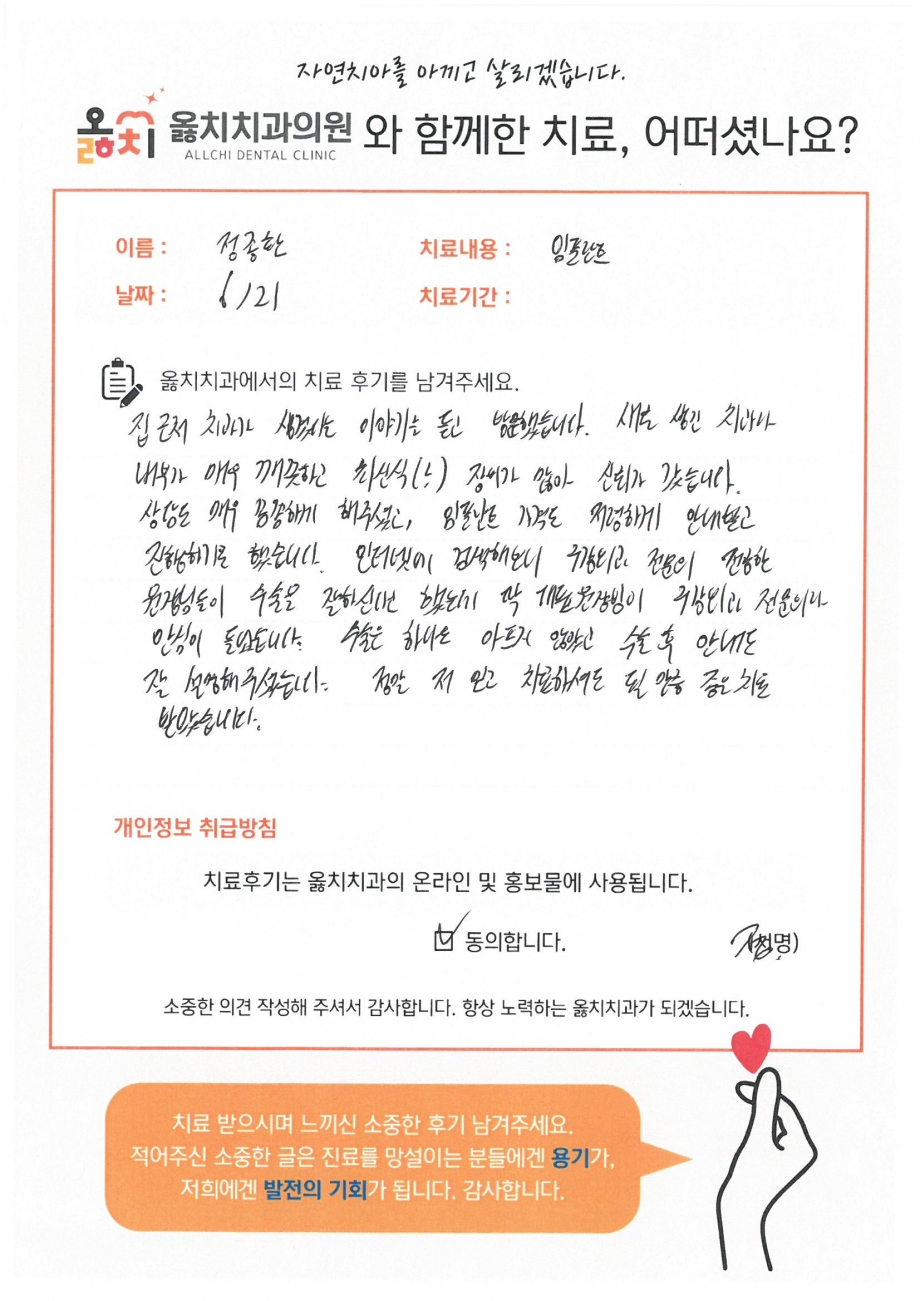 자연치아를 아끼고 살리겠습니다.
옳치 옳치치과의원 와 함께한 치료, 어떠셨나요?
ALLCHI DENTAL CLINIC
이름 : 정종환 치료내용 : 임플란트
날짜 : 6/21 치료기간 :
옳치치과에서의 치료 후기를 남겨주세요.
집 근처 치과가 생겼다는 이야기를 듣고 방문했습니다. 새로 생긴 치과라
내부가 매우 깨끗하고 최신식(!) 장비가 많아 신뢰가 갔습니다.
상담도 매우 꼼꼼하게 해주셨고, 임플란트 가격도 저렴하게 안내받고
진행하기로 했습니다. 인터넷에 검색해보니 구강외과 전문의 전공한
원장님들이 수술을 잘하신다던 했는데 딱 대표원장님이 구강외과 전문의라
안심이 되었습니다. 수술은 하나도 아프지 않았고 수술 후 안내도
잘 설명해주셨습니다. 정말 저 믿고 치료하셔도 될 만큼 좋은 치료
받았습니다.
개인정보 취급방침
치료후기는 옳치치과의 온라인 및 홍보물에 사용됩니다.
동의합니다. 명)
소중한 의견 작성해 주셔서 감사합니다. 항상 노력하는 옳치치과가 되겠습니다.
치료 받으시며 느끼신 소중한 후기 남겨주세요.
적어주신 소중한 글은 진료를 망설이는 분들에겐 용기가,
저희에겐 발전의 기회가 됩니다. 감사합니다.